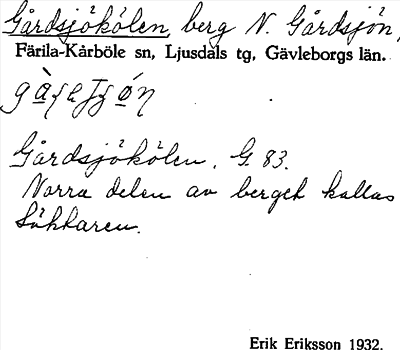 Gårdsjökölen, berg N. Gårdsjön,
Färila-Kårböle sn, Ljusdals tg, Gävleborgs län.
Gårdsjökölen. G. 83.
Norra delen av berget kallas
Erik Eriksson 1932.